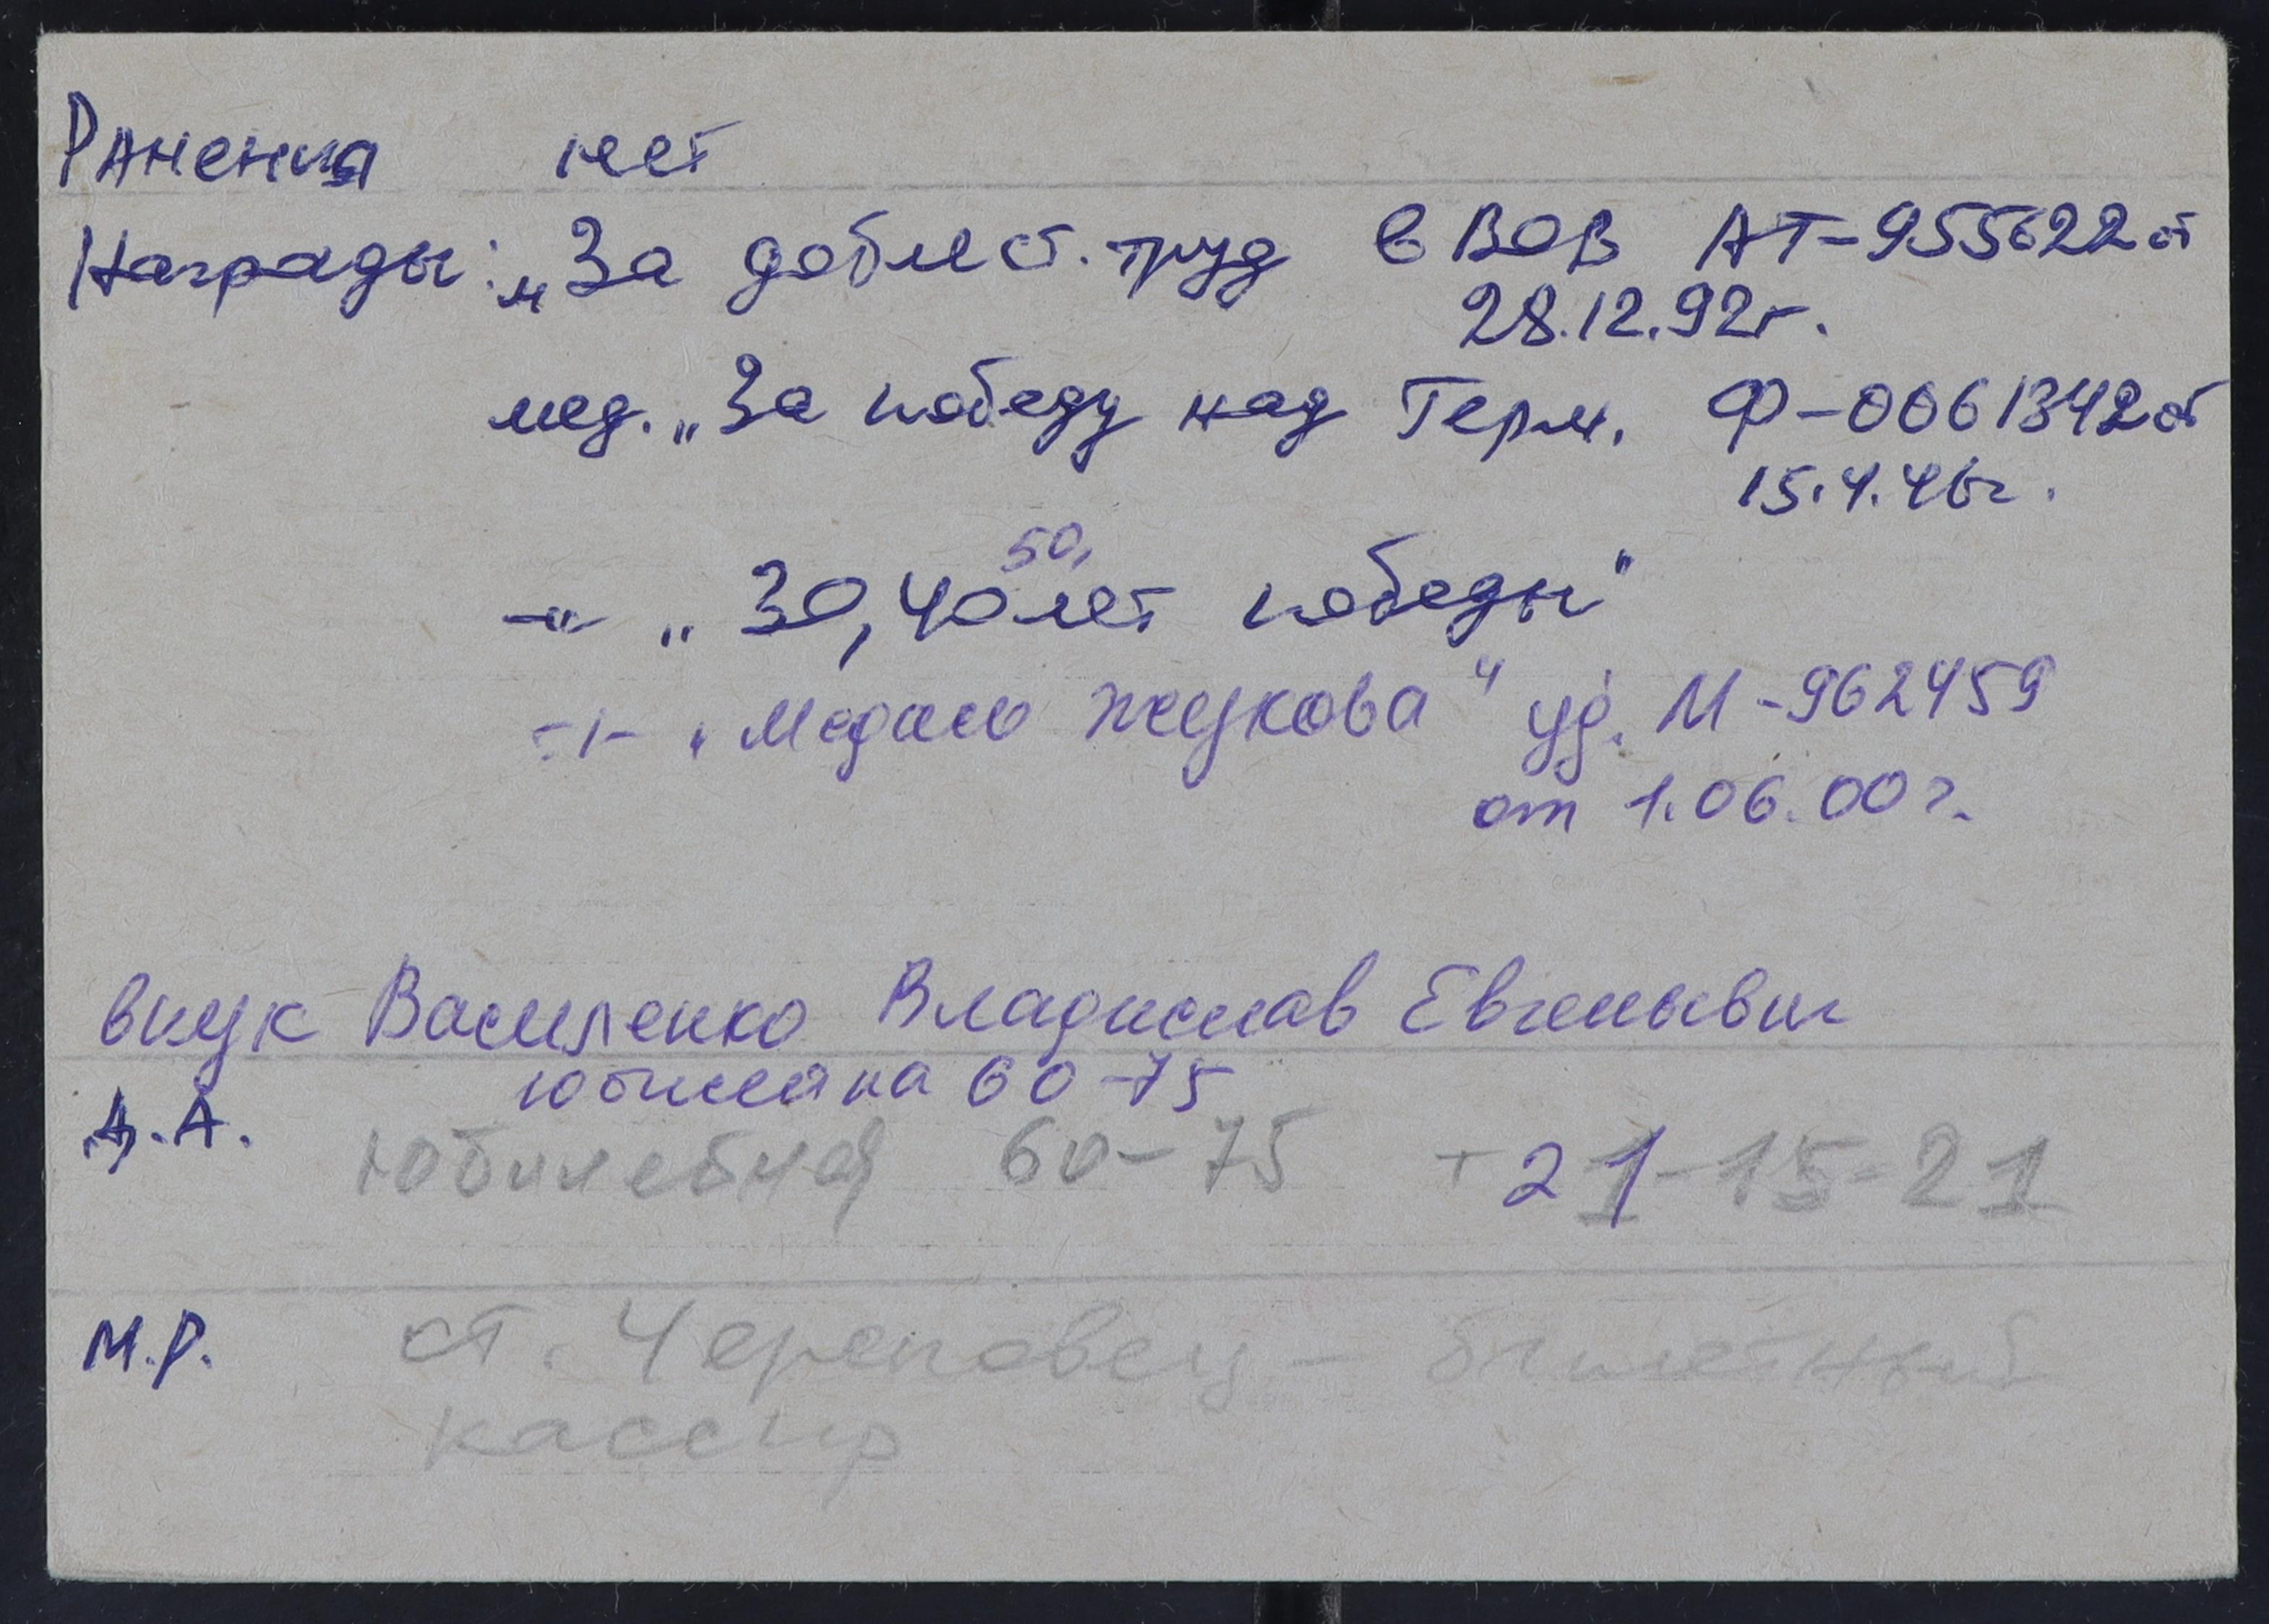 Ранения нет
Награды: м „За доблест. труд в ВОВ АТ-955622 от
28.12.92г.
мед. „За победу над Герм. Ф-0061342 от
15.4.46г.
50,
-"- „30, 40 лет победы"
-"- „Медаль Жукова" уд. М-962459
от 1.06.00г.
внук Василенко Владислав Евгеньевич
юбилейна 60-75
Д.А. юбилейная 60-75 т 21-15-21
М.Р. ст. Череповец - билетный
кассир